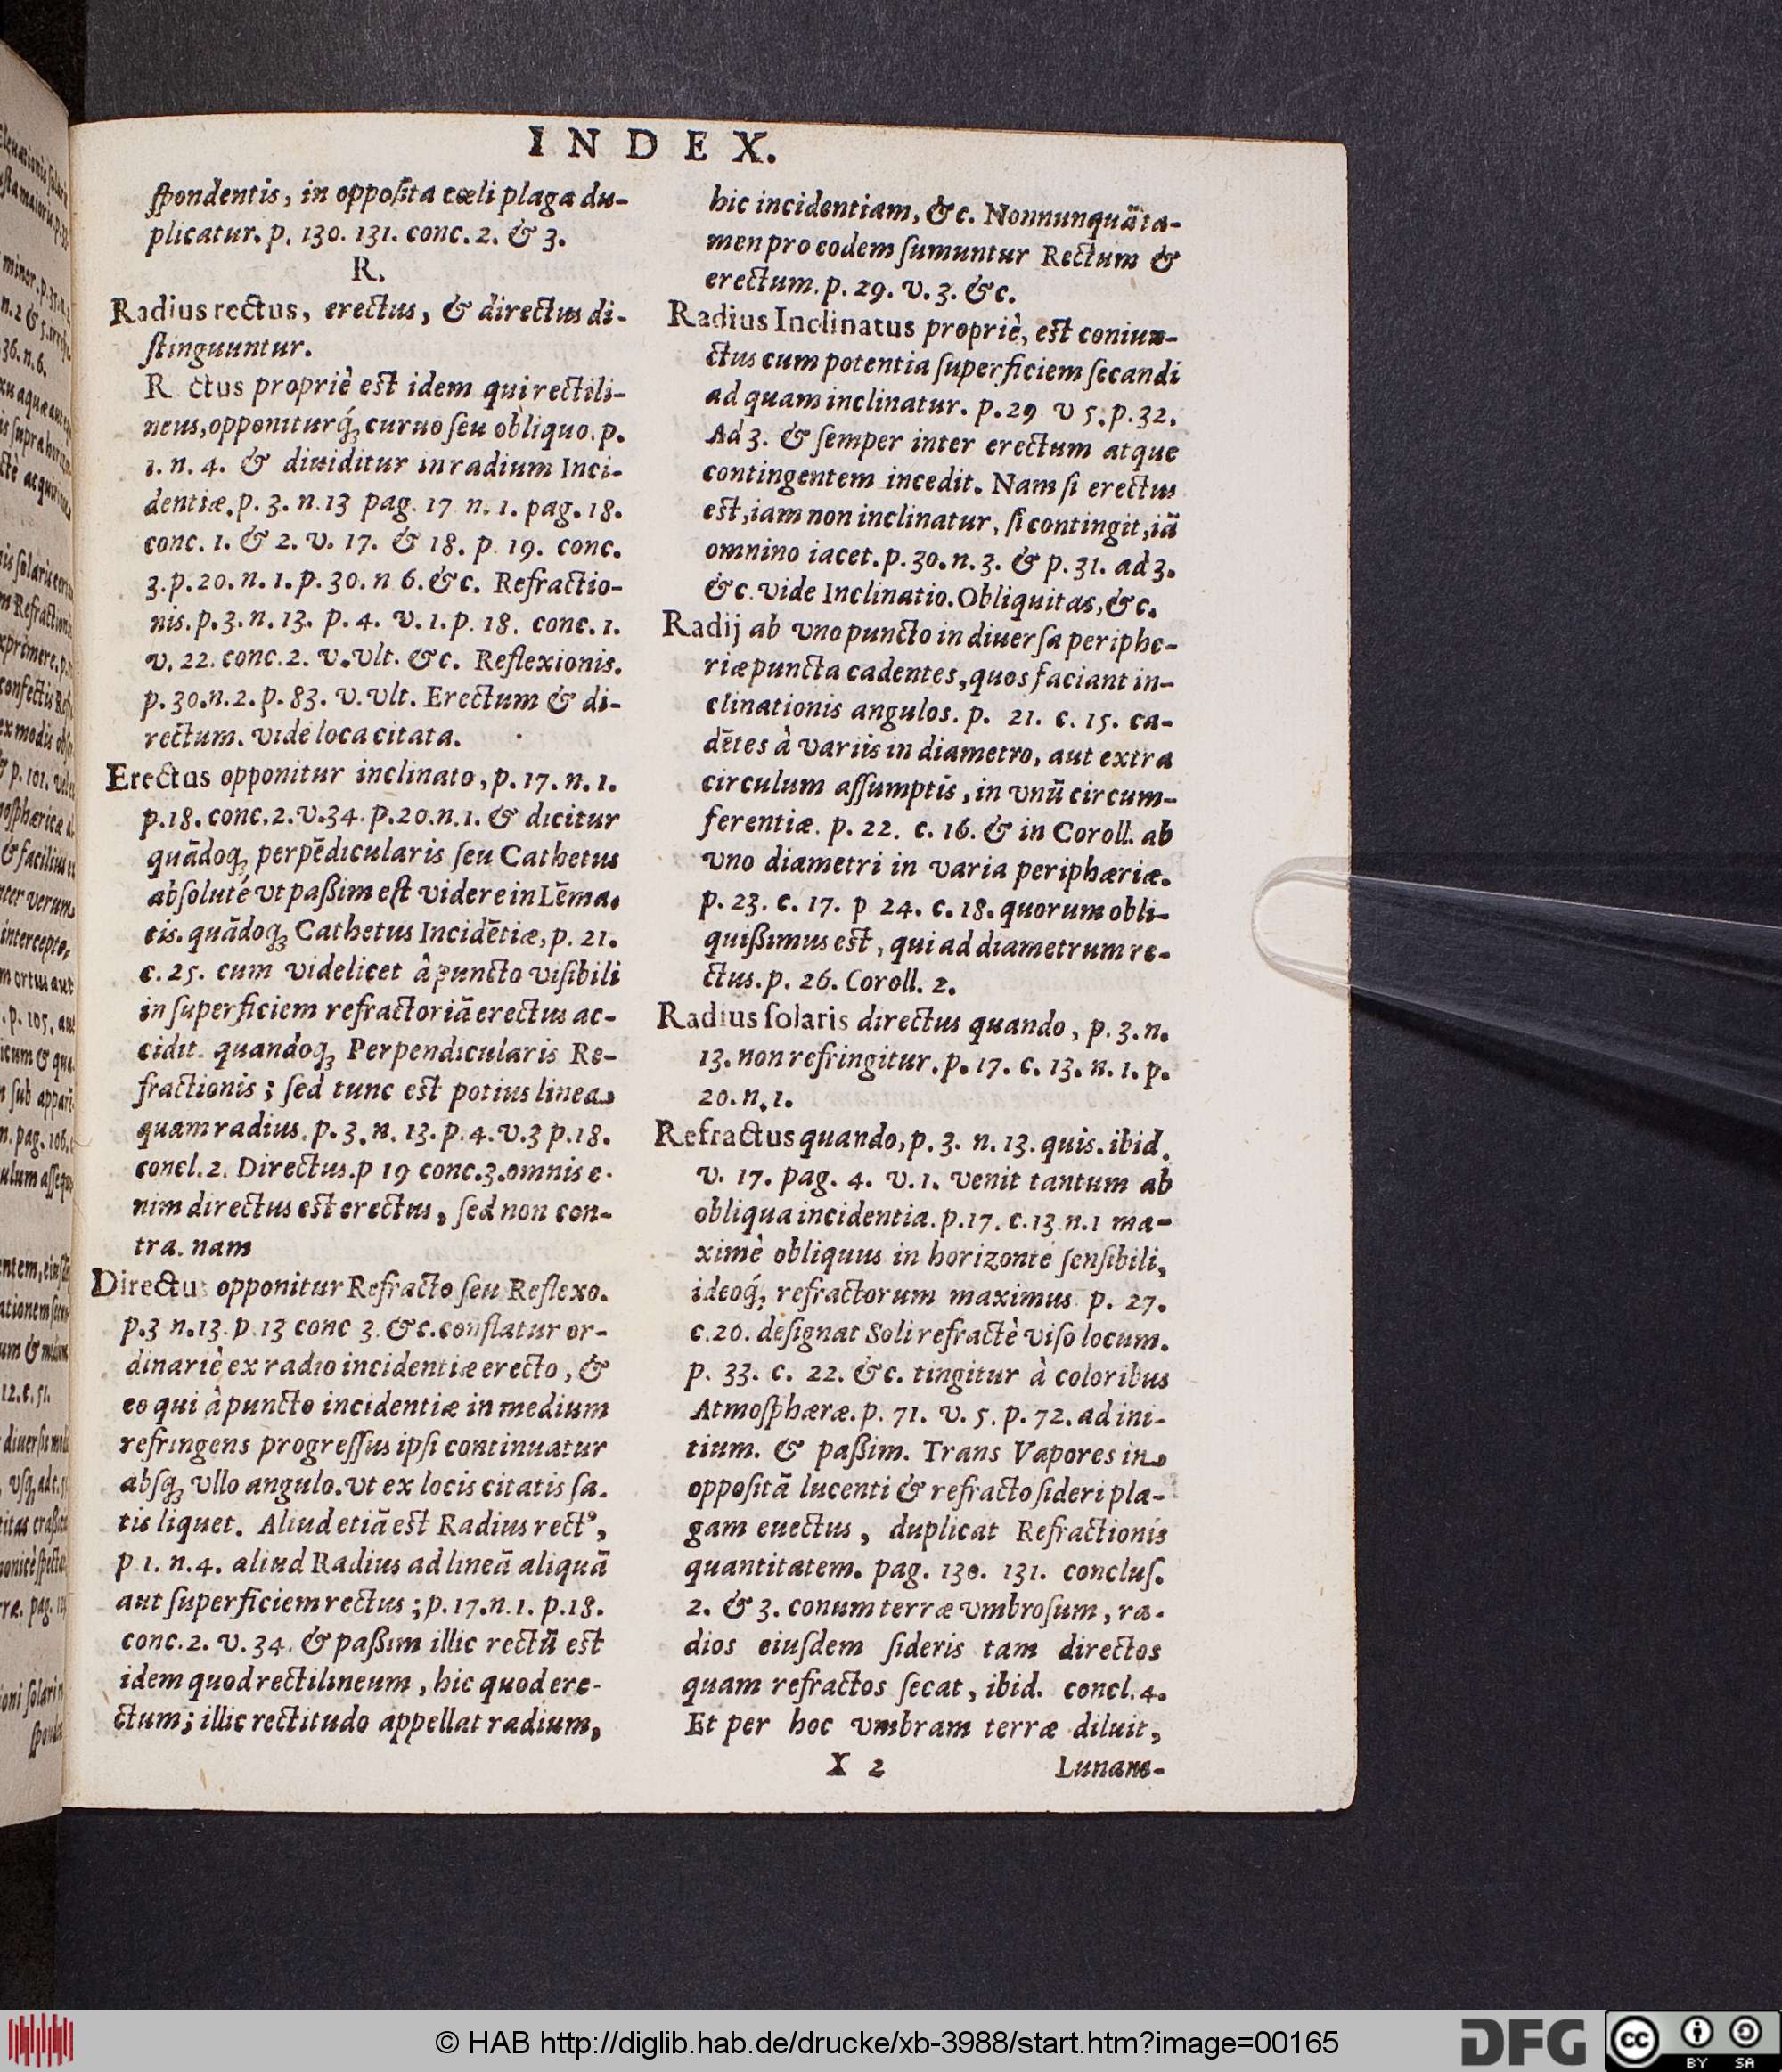 INDEX.
ſpondentis, in oppoſita cœli plaga du-
plicatur. p. 130. 131. conc. 2. & 3.
R.
Radius rectus, erectus, & directus di-
ſtinguuntur.
R ctus propriè est idem qui rectili-
neus, opponiturq́ꝫ curuo ſeu obliquo. p.
1. n. 4. & diuiditur in radium Inci-
dentiæ. p. 3. n. 13 pag. 17 n. 1. pag. 18.
conc. 1. & 2. v. 17. & 18. p. 19. conc.
3. p. 20. n. 1. p. 30. n 6. &c. Refractio-
nis. p. 3. n. 13. p. 4. v. 1. p. 18. conc. 1.
v. 22. conc. 2. v. vlt. &c. Reflexionis.
p. 30. n. 2. p. 83. v. vlt. Erectum & di-
rectum. vide loca citata.
Erectus opponitur inclinato, p. 17. n. 1.
p. 18. conc. 2. v. 34. p. 20. n. 1. & dicitur
quãdoqꝫ perpẽdicularis ſeu Cathetus
abſolutè vt paßim eſt videre in Lẽma.
tis. quãdoqꝫ Cathetus Incidẽtiæ, p. 21.
c. 25. cum videlicet â puncto viſibili
in ſuperficiem refractoriã erectus ac-
cidit. quandoqꝫ Perpendicularis Re-
fractionis; ſed tunc est potius linea
quam radius. p. 3. n. 13. p. 4. v. 3 p. 18.
concl. 2. Directus. p 19 conc. 3. omnis e-
nim directus est erectus, ſed non con-
tra. nam
Directus opponitur Refracto ſeu Reflexo.
p. 3 n. 13. p. 13 conc 3. &c. conflatur or-
dinariè ex radio incidentiæ erecto, &
eo qui à puncto incidentiæ in medium
refringens progreſſus ipſi continuatur
abſqꝫ vllo angulo. vt ex locis citatis ſa-
tis liquet. Aliud etiã est Radius rectꝰ,
p 1. n. 4. aliud Radius ad lineã aliquã
aut ſuperficiem rectus; p. 17. n. 1. p. 18.
conc. 2. v. 34. & paßim illic rectũ est
idem quod rectilineum, hic quod ere-
ctum; illic rectitudo appellat radium,
hic incidentiam, &c. Nonnunquã ta-
men pro eodem ſumuntur Rectum &
erectum. p. 29. v. 3. &c.
Radius Inclinatus propriè, est coniun-
ctus cum potentia ſuperficiem ſecandi
ad quam inclinatur. p. 29 v 5. p. 32.
Ad 3. & ſemper inter erectum atque
contingentem incedit. Nam ſi erectus
est, iam non inclinatur, ſi contingit, iã
omnino iacet. p. 30. n. 3. & p. 31. ad 3.
&c. vide Inclinatio. Obliquitas, &c.
Radij ab vno puncto in diuerſa periphe-
riæ puncta cadentes, quos faciant in-
clinationis angulos. p. 21. c. 15. ca-
dẽtes à variis in diametro, aut extra
circulum aſſumptis, in vnũ circum-
ferentiæ. p. 22. c. 16. & in Coroll. ab
vno diametri in varia periphæriæ.
p. 23. c. 17. p 24. c. 18. quorum obli-
quißimus est, qui ad diametrum re-
ctus. p. 26. Coroll. 2.
Radius ſolaris directus quando, p. 3. n.
13. non refringitur. p. 17. c. 13. n. 1. p.
20. n. 1.
Refractus quando, p. 3. n. 13. quis. ibid.
v. 17. pag. 4. v. 1. venit tantum ab
obliqua incidentia. p. 17. c. 13 n. 1 ma-
ximè obliquus in horizonte ſenſibili,
ideoq́ꝫ refractorum maximus p. 27.
c. 20. deſignat Soli refractè viſo locum.
p. 33. c. 22. &c. tingitur à coloribus
Atmoſphæræ. p. 71. v. 5. p. 72. ad ini-
tium. & paßim. Trans Vapores in
oppoſitã lucenti & refracto ſideri pla-
gam euectus, duplicat Refractionis
quantitatem. pag. 130. 131. concluſ.
2. & 3. conum terræ vmbroſum, ra-
dios eiuſdem ſideris tam directos
quam refractos ſecat, ibid. concl. 4.
Et per hoc vmbram terræ diluit,
X 2 Lunam-
© HAB http://diglib.hab.de/drucke/xb-3988/start.htm?image=00165
DFG
cc BY SA